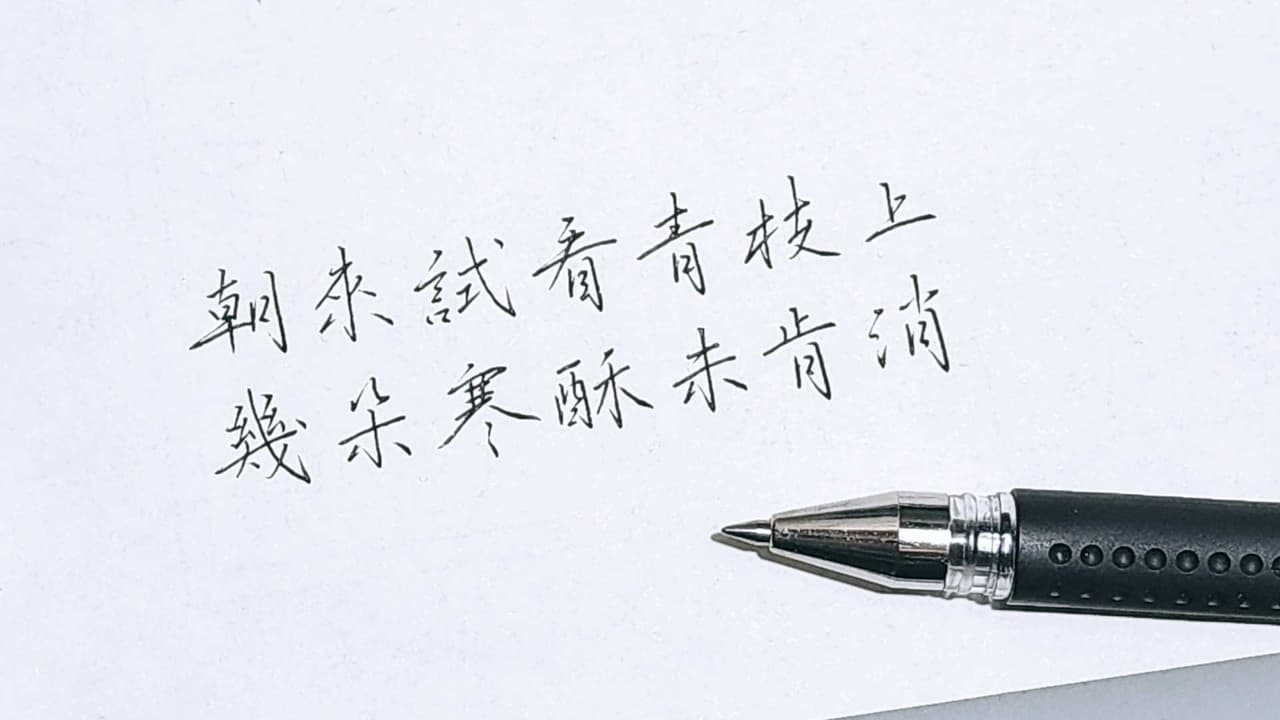 朝來試看青枝上
幾朵寒酥未肯消